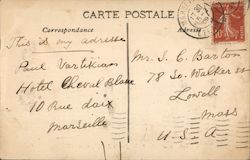 CARTE POSTALE
Correspondance
Adresse
This is my adresse
Paul Vartikian
Hotel Cheval Blanc
10 Rue daix
Marseille
Mr. S. C. Barton
78 So. Walker st
Lowell
Mass
U-S A